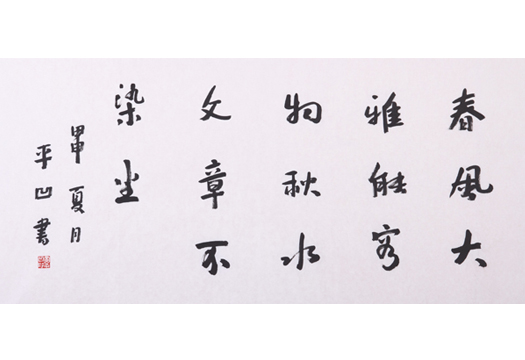 春風大
雅能容
物秋水
文章不
染尘
甲申夏月
平凹書